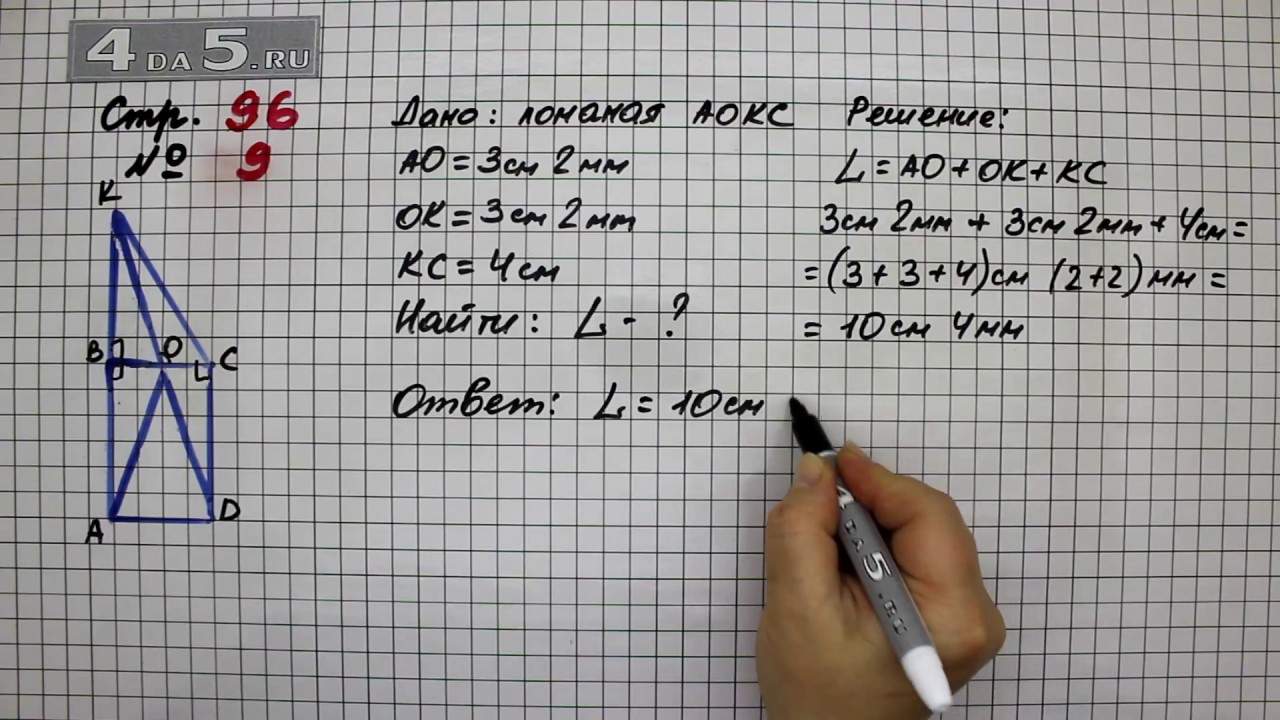 4 DA 5.RU
Стр. 96
№ 9
Дано: ломаная АОКС
АО = 3см 2мм
ОК = 3см 2мм
КС = 4см
Найти: L - ?
Решение:
L = АО + ОК + КС
3см 2мм + 3см 2мм + 4см =
= (3 + 3 + 4)см (2+2)мм =
= 10см 4мм
Ответ: L = 10см
К
В О С
А D
4 DA 5.RU